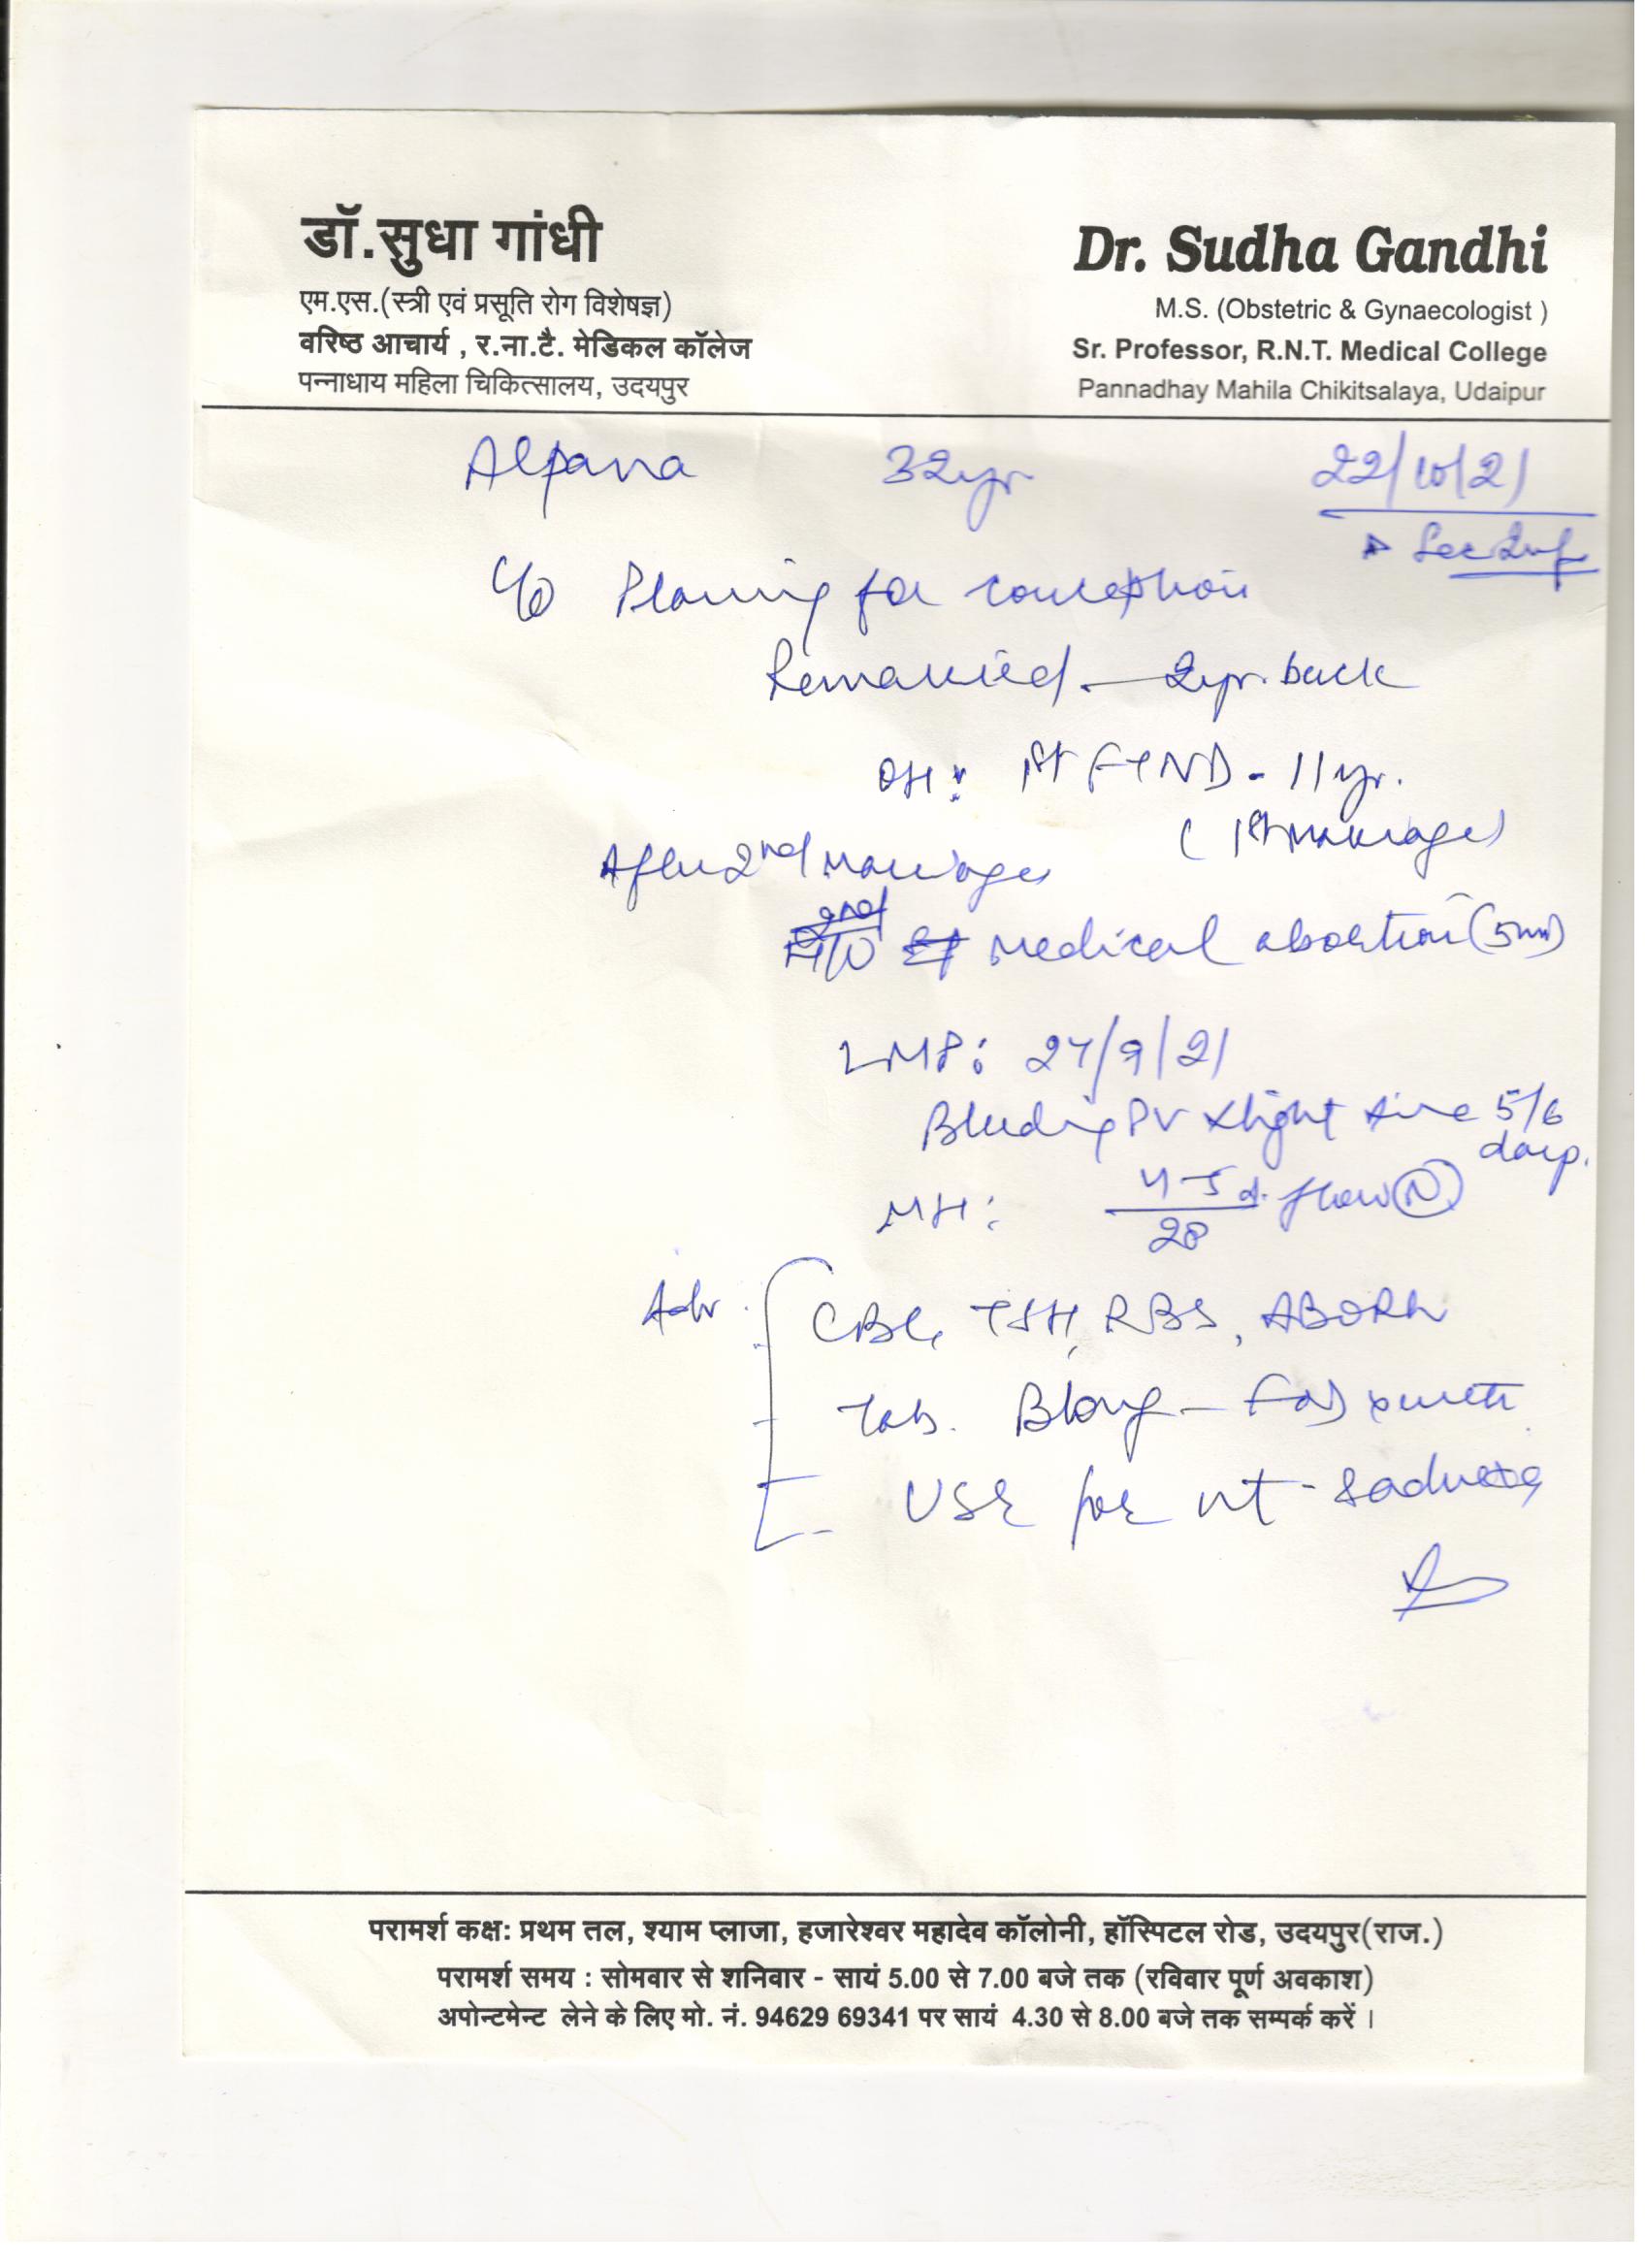 डॉ.सुधा गांधी
एम.एस.(स्त्री एवं प्रसूति रोग विशेषज्ञ)
वरिष्ठ आचार्य , र.ना.टै. मेडिकल कॉलेज
पन्नाधाय महिला चिकित्सालय, उदयपुर
Dr. Sudha Gandhi
M.S. (Obstetric & Gynaecologist )
Sr. Professor, R.N.T. Medical College
Pannadhay Mahila Chikitsalaya, Udaipur
Alpana 32yr 22/10/21
Sec Inf
C/o Planning for conception
Remarried - 2yr. back
OH: 1st FTND - 11yr.
(1st marriage)
After 2nd marriage
2nd Medical abortion
LMP: 27/9/21
Bleeding PV slight since 5/6
days.
MH: 4-5 d. flow (N)
28
Adv
CBC, TSH, RBS, ABORh
Tab. Blong - F OD
USG for ut -
परामर्श कक्ष: प्रथम तल, श्याम प्लाजा, हजारेश्वर महादेव कॉलोनी, हॉस्पिटल रोड, उदयपुर(राज.)
परामर्श समय : सोमवार से शनिवार - सायं 5.00 से 7.00 बजे तक (रविवार पूर्ण अवकाश)
अपोन्टमेन्ट लेने के लिए मो. नं. 94629 69341 पर सायं 4.30 से 8.00 बजे तक सम्पर्क करें ।